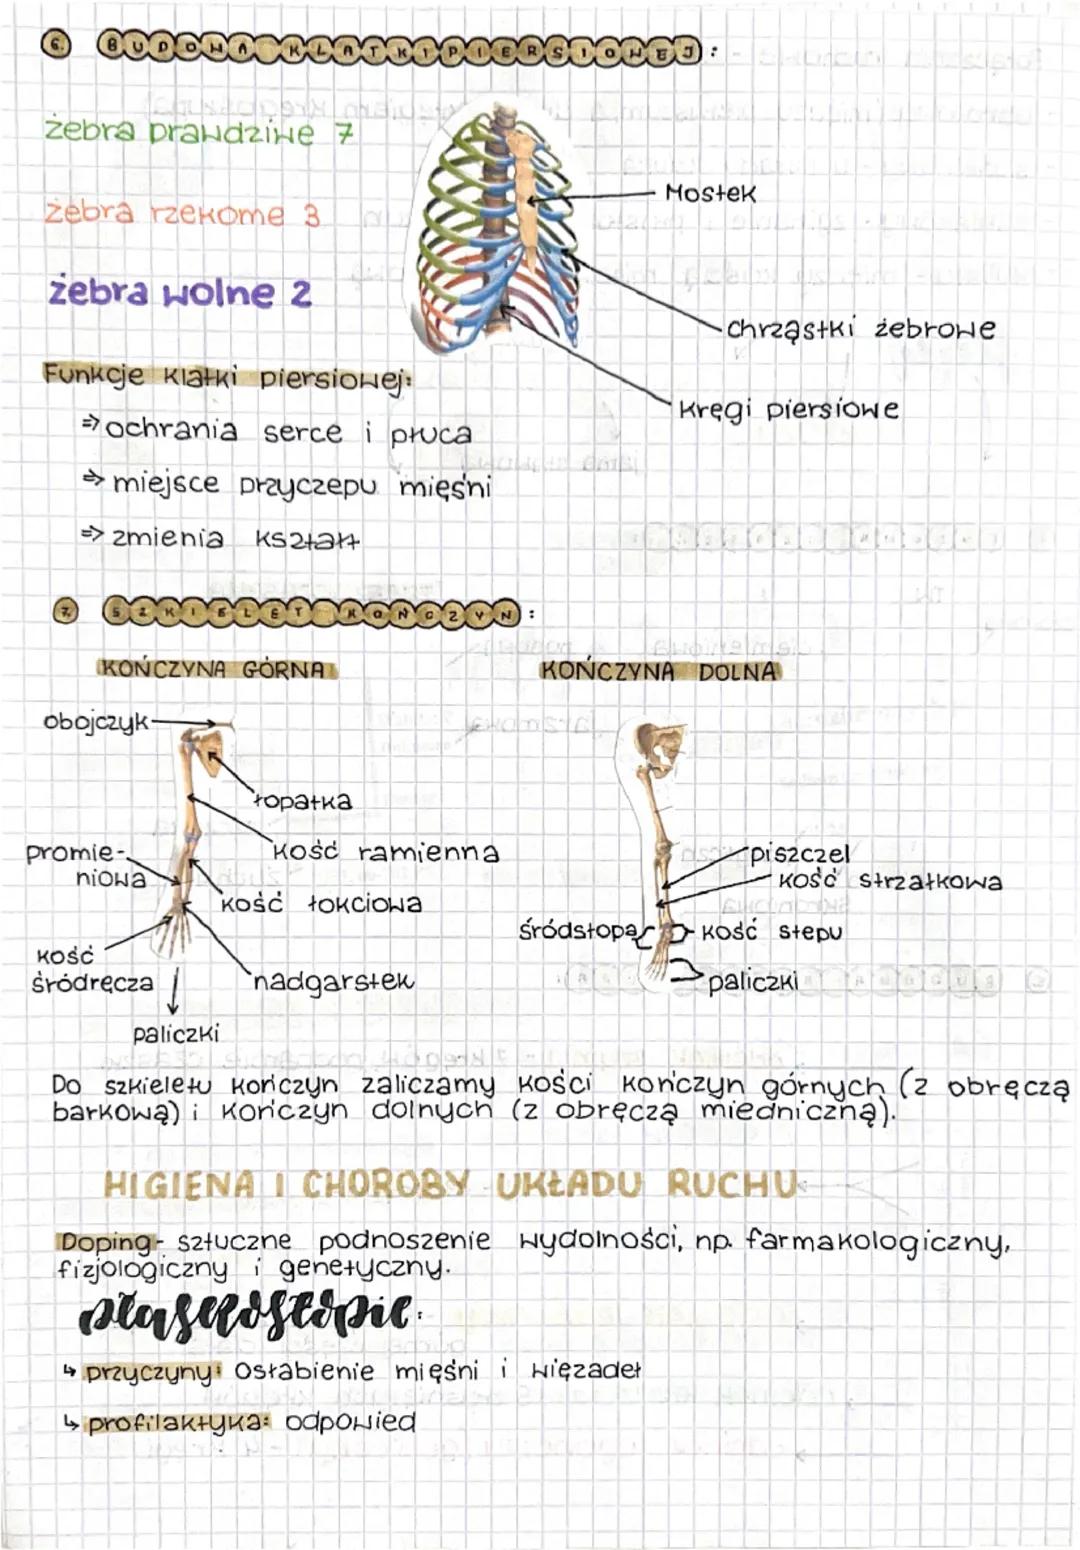 6. BUDOWA KLATKI PIERSIOWEJ:
żebra prawdziwe 7
żebra rzekome 3
żebra wolne 2
Mostek
chrząstki żebrowe
kręgi piersiowe
Funkcje klatki piersiowej:
⇒ ochrania serce i płuca
⇒ miejsce przyczepu mięśni
⇒ zmienia kształt
7. SZKIELET KOŃCZYN:
KOŃCZYNA GÓRNA
obojczyk
łopatka
kość ramienna
promie-
niowa
kość łokciowa
kość
śródręcza
nadgarstek
paliczki
KOŃCZYNA DOLNA
piszczel
kość strzałkowa
śródstopa
kość stepu
paliczki
Do szkieletu kończyn zaliczamy kości kończyn górnych (z obręczą
barkową) i kończyn dolnych (z obręczą miedniczną).
HIGIENA I CHOROBY UKŁADU RUCHU
Doping - sztuczne podnoszenie wydolności, np. farmakologiczny,
fizjologiczny i genetyczny.
płaskostopie:
↳ przyczyny: osłabienie mięśni i więzadeł
↳ profilaktyka: odpowied